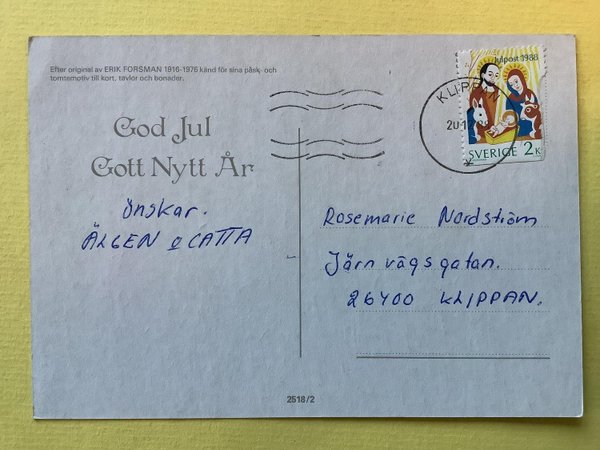 Efter original av ERIK FORSMAN 1916-1976 känd för sina påsk- och
tomtemotiv till kort, tavlor och bonader.
God Jul
Gott Nytt År
önskar.
ÄLGEN o CATTA
Julpost 1988
KLIPPAN
SVERIGE 2K
Rosemarie Nordström
Järnvägsgatan.
26400 KLIPPAN.
2518/2